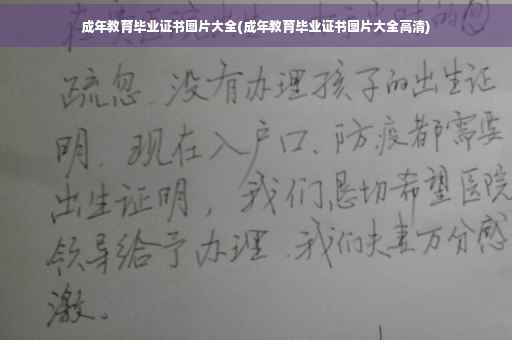 成年教育毕业证书图片大全(成年教育毕业证书图片大全高清)
疏忽、没有办理孩子的出生证
明、现在入户口、防疫都需要
出生证明，我们恳切希望医院
领导给予办理、我们夫妻万分感
激。